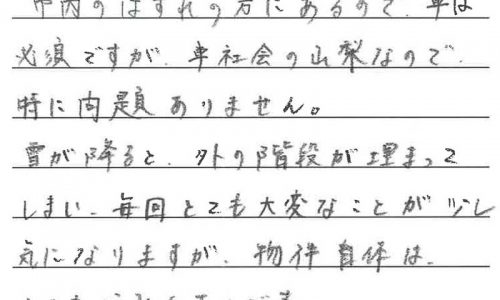 市内のはずれの方にあるので、車は
必須ですが、車社会の山梨なので、
特に問題ありません。
雪が降ると、外の階段が埋まって
しまい、毎回とても大変なことが少し
気になりますが、物件自体は、